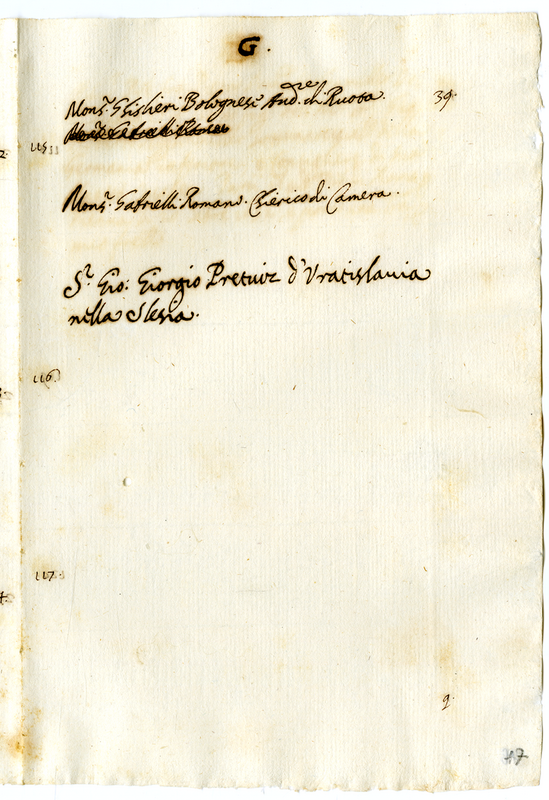 G.
Mons.r Ghislieri Bolognese Aud.re di Ruota. 39.
115
Mons.r Gabrielli Romano. Chierico di Camera.
S.r Gio: Giorgio Pretuiz d'Vratislauia
nella Slesia.
116
117.
9.
47